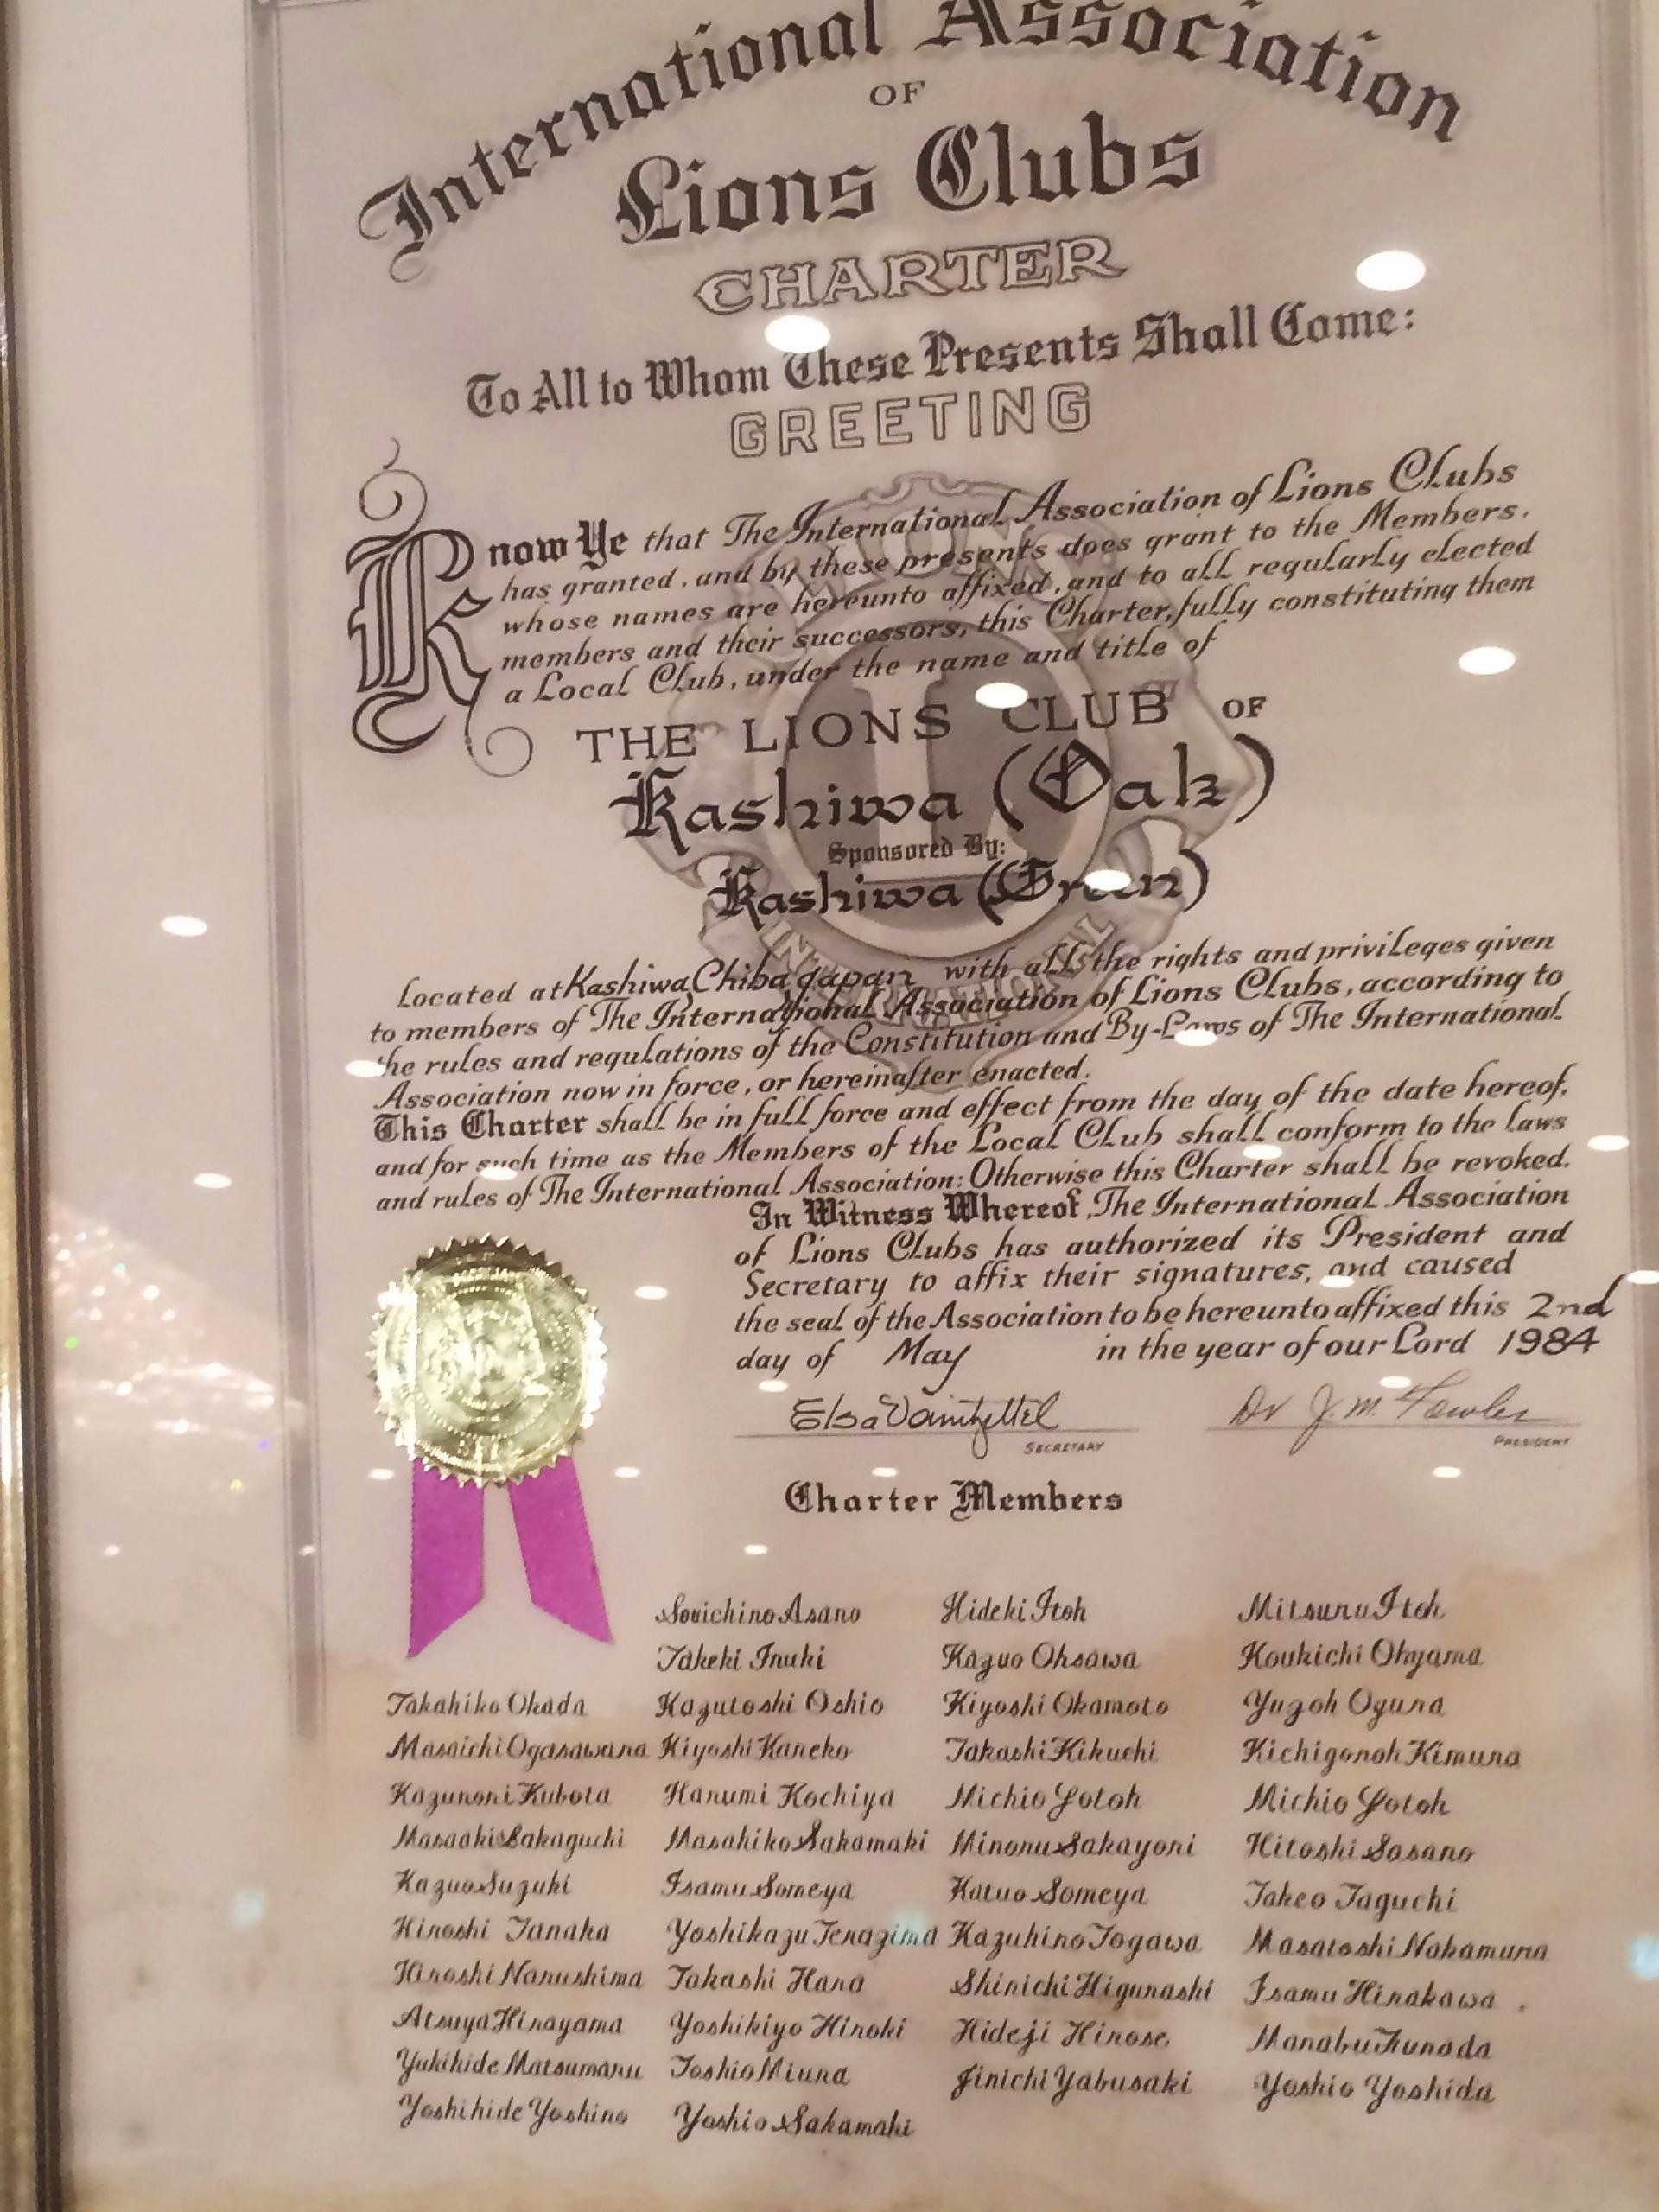 International Association
OF
Lions Clubs
CHARTER
To All to Whom These Presents Shall Come:
GREETING
Know Ye that The International Association of Lions Clubs
has granted, and by these presents does grant to the Members,
whose names are hereunto affixed, and to all regularly elected
members and their successors, this Charter, fully constituting them
a Local Club, under the name and title of
THE LIONS CLUB OF
Kashiwa (Oak)
Sponsored By:
Kashiwa (Green)
Located at Kashiwa, Chiba, Japan with all the rights and privileges given
to members of The International Association of Lions Clubs, according to
the rules and regulations of the Constitution and By-Laws of The International
Association now in force, or hereinafter enacted.
This Charter shall be in full force and effect from the day of the date hereof,
and for such time as the Members of the Local Club shall conform to the laws
and rules of The International Association: Otherwise this Charter shall be revoked.
In Witness Whereof, The International Association
of Lions Clubs has authorized its President and
Secretary to affix their signatures, and caused
the seal of the Association to be hereunto affixed this 2nd
day of May in the year of our Lord 1984
Dr J. M. Fowler
SECRETARY PRESIDENT
Charter Members
Souichiro Asano Hideki Itoh Mitsuru Itoh
Takeki Inuki Kazuo Ohsawa Koukichi Ohyama
Takahiko Okada Kazutoshi Oshio Kiyoshi Okamoto Yuzoh Ogura
Masaichi Ogasawara Kiyoshi Kaneko Takashi Kikuchi Kichigoroh Kimura
Kazunori Kubota Harumi Kochiya Michio Gotoh Michio Gotoh
Masaaki Sakaguchi Masahiko Sakamaki Minoru Sakayori Hitoshi Sasano
Kazuo Suzuki Isamu Someya Katuo Someya Takeo Taguchi
Hiroshi Tanaka Yoshikazu Terazima Kazuhiro Togawa Masatoshi Nakamura
Hiroshi Narushima Takashi Hara Shinichi Higurashi Isamu Hirakawa
Atsuya Hirayama Yoshikiyo Hiroki Hideji Hirose Manabu Furuda
Yukihide Matsumaru Toshio Miura Jinichi Yabusaki Yoshio Yoshida
Yoshihide Yoshino Yoshio Sakamaki